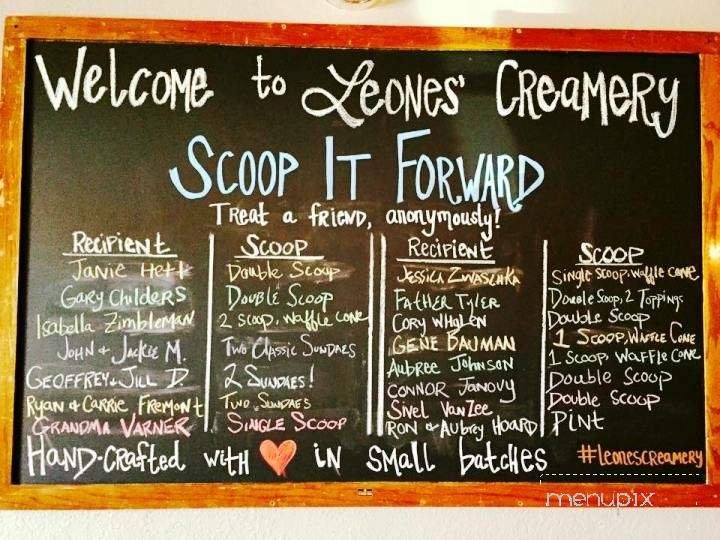 Welcome to Leones' Creamery
Scoop It Forward
Treat a friend, anonymously!
Recipient Scoop
Janie Hett Double Scoop
Gary Childers Double Scoop
Isabella Zimbleman 2 Scoop, Waffle Cone
John & Jackie M. Two Classic Sundaes
Geoffrey & Jill D. 2 Sundaes!
Ryan & Carrie Fremont Two Sundaes
Grandma Varner Single Scoop
Recipient Scoop
Jessica Zwaschka Single Scoop, Waffle Cone
Father Tyler Double Scoop, 2 Toppings
Cory Whalen Double Scoop
Gene Bauman 1 Scoop, Waffle Cone
Aubree Johnson 1 Scoop Waffle Cone
Connor Janovy Double Scoop
Sivel VanZee Double Scoop
Ron & Aubrey Hoard Pint
Hand-Crafted with in small batches
#leonescreamery
menupix